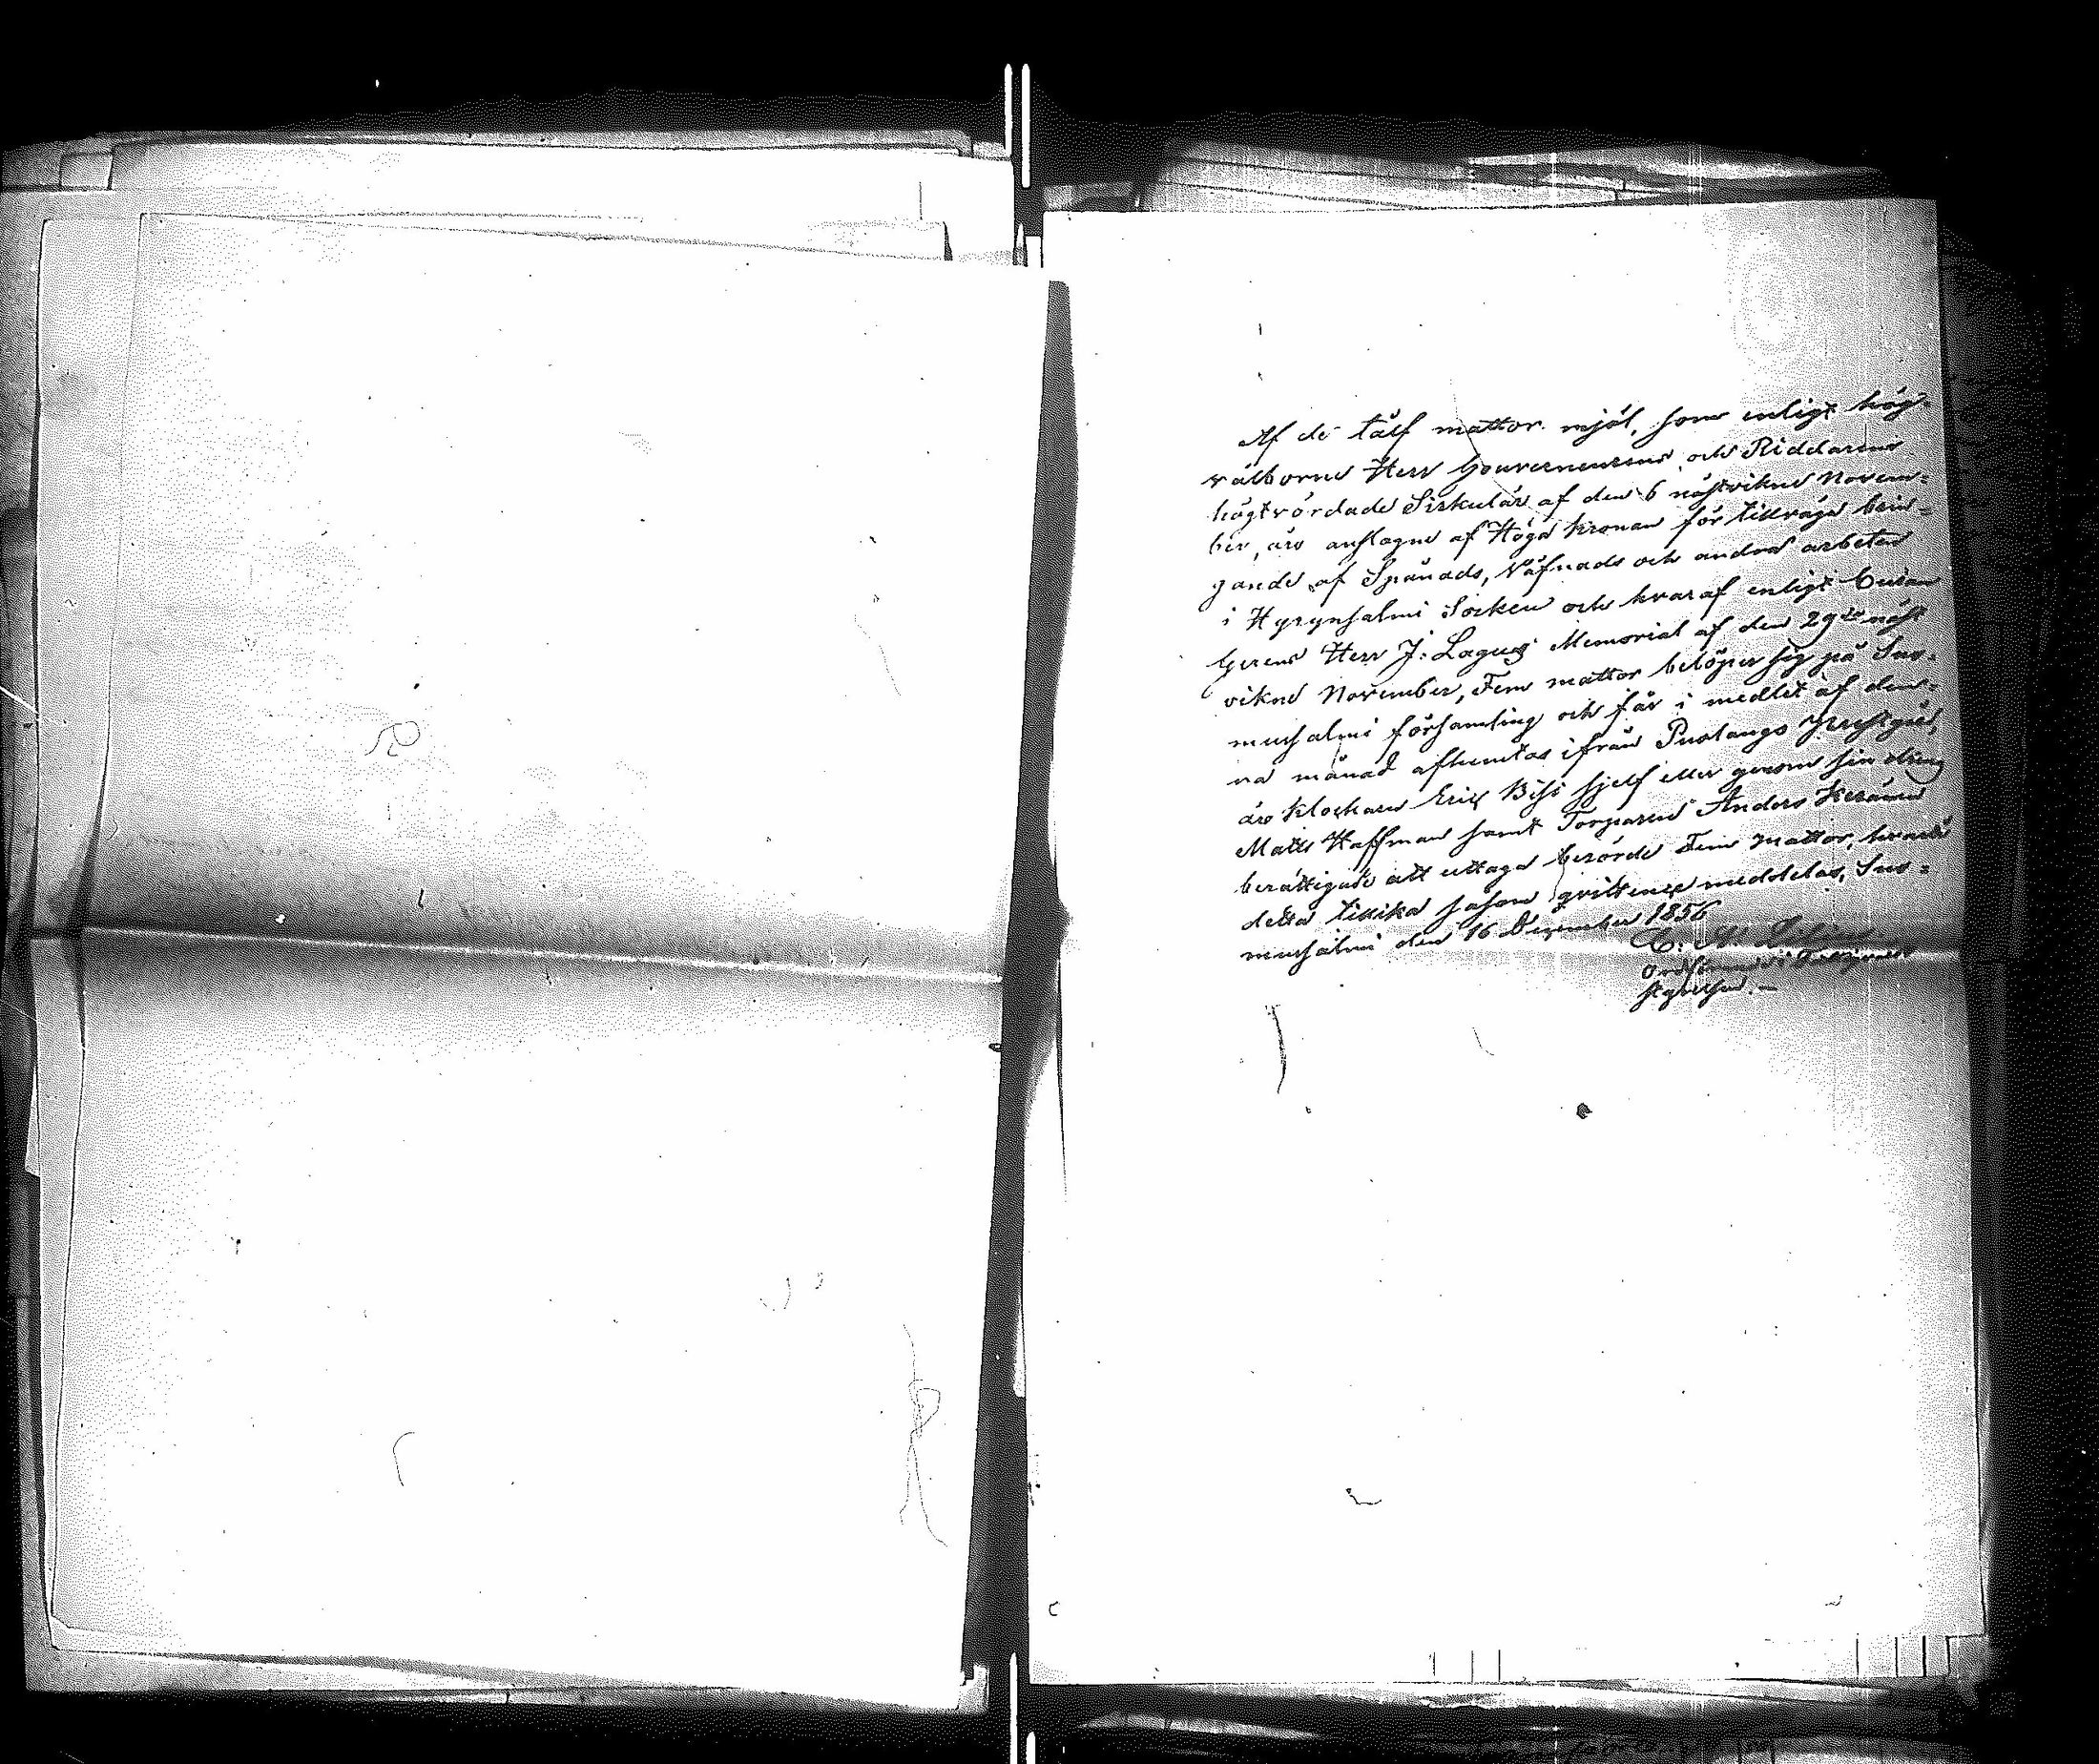 Af de tålf mattor mjöl, som enligt hög-
välborne Herr Gouverneurens och Riddarens
högtvördade Sirkulär af den 6 nästvikne Novem-
ber, äro anslagne af Höga Kronan för tillväga brin-
gande af Spånads, Väfnads och andra arbeten
i Hyrynsalmi Socken och hvaraf enligt
Herr J: Lagus Memorial af den 29de näst
vikne November, Fem mattor belöper sig på Suo-
mussalmi församling och får i medlet af den-
na månad afhemtas ifrån Puolango
äro Klockare Eric Bisi sjelf eller genom sin dreng
Matts Haffman samt Torparen Anders Keränen
berättigade att uttaga berörde Fem mattor, hvarå
detta tillika såsom qvittence meddelas, Suo-
mussalmi den 16 December 1856